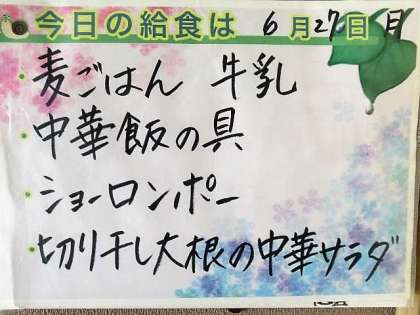 今日の給食は 6月27日 月
・麦ごはん 牛乳
・中華飯の具
・ショーロンポー
・切り干し大根の中華サラダ